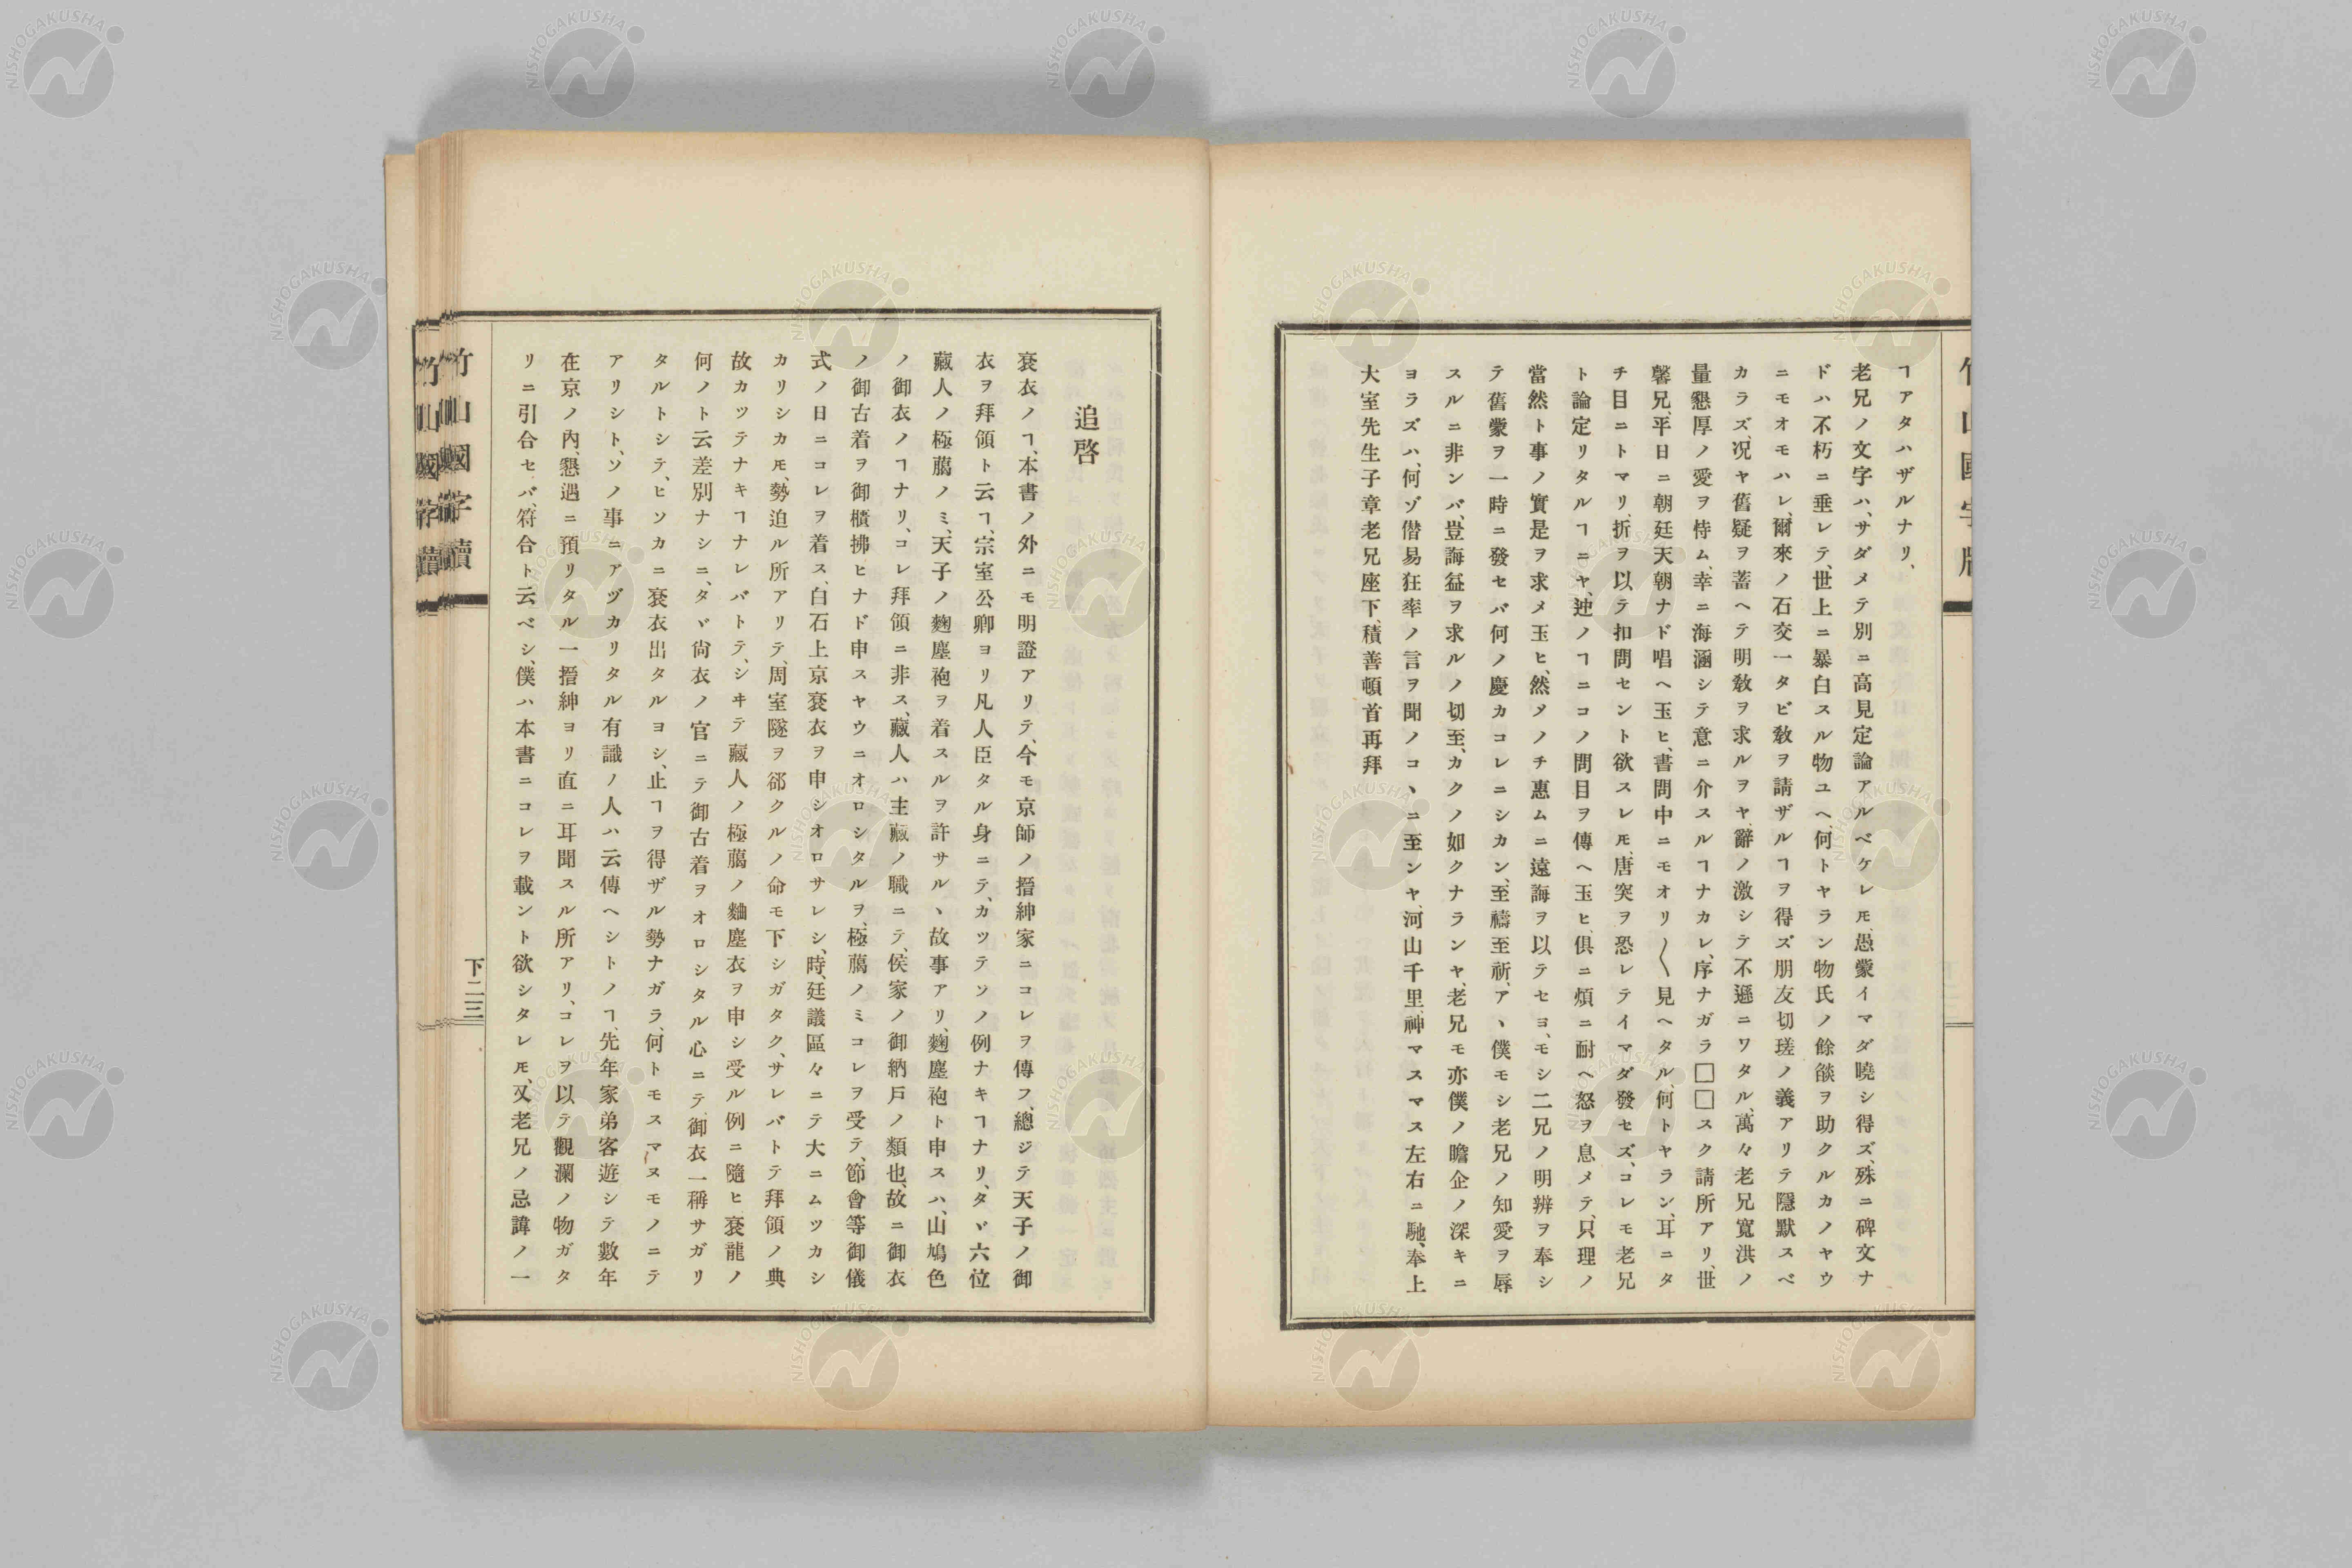 ヿアタハザルナリ、
老兄ノ文字ハ、サダメテ別ニ高見定論アルベケレ𪜈、愚蒙イマダ曉シ得ズ、殊ニ碑文ナ
ドハ不朽ニ垂レテ、世上ニ暴白スル物ユヘ、何トヤラン物氏ノ餘燄ヲ助クルカノヤウ
ニモオモハレ、爾來ノ石交一タビ教ヲ請ザルヿヲ得ズ朋友切瑳ノ義アリテ隱默スベ
カラズ、况ヤ舊疑ヲ蓄ヘテ明教ヲ求ルヲヤ、辭ノ激シテ不遜ニワタル、萬々老兄寬洪ノ
量懇厚ノ愛ヲ恃ム、幸ニ海涵シテ意ニ介スルヿナカレ、序ナガラ□□スク請所アリ、世
馨兄、平日ニ朝廷天朝ナド唱ヘ玉ヒ、書問中ニモオリ〱見ヘタル、何トヤラン、耳ニタ
チ目ニトマリ、折ヲ以テ扣問セント欲スレ𪜈、唐突ヲ恐レテイマダ發セズ、コレモ老兄
ト論定リタルヿニヤ、迚ノヿニコノ問目ヲ傳ヘ玉ヒ、俱ニ煩ニ耐ヘ怒ヲ息メテ、只理ノ
當然ト事ノ實是ヲ求メ玉ヒ、然メノチ惠ムニ遠誨ヲ以テセヨ、モシ二兄ノ明辨ヲ奉シ
テ舊蒙ヲ一時ニ發セバ何ノ慶カコレニシカン、至禱至祈、ア、僕モシ老兄ノ知愛ヲ辱
スルニ非ンバ、豈誨益ヲ求ルノ切至、カクノ如クナランヤ、老兄モ亦僕ノ瞻企ノ深キニ
ヨラズハ、何ゾ僭易狂率ノ言ヲ聞ノコヽニ至ンヤ、河山千里、神マスマス左右ニ馳、奉上
大室先生子章老兄座下、積善頓首再拜
追啓
袞衣ノヿ、本書ノ外ニモ明證アリテ、今モ京師ノ搢紳家ニコレヲ傳フ、總ジテ天子ノ御
衣ヲ拜領ト云ヿ、宗室公卿ヨリ凡人臣タル身ニテ、カツテソノ例ナキヿナリ、タヾ六位
藏人ノ極﨟ノミ、天子ノ麴塵袍ヲ着スルヲ許サルヽ故事アリ、麴塵袍ト申スハ、山鳩色
ノ御衣ノヿナリ、コレ拜領ニ非ス、藏人ハ主藏ノ職ニテ、侯家ノ御納戶ノ類也、故ニ御衣
ノ御古着ヲ御櫃拂ヒナド申スヤウニオロシタルヲ、極﨟ノミコレヲ受テ、節會等御儀
式ノ日ニコレヲ着ス、白石上京袞衣ヲ申シオロサレシ、時、廷議區々ニテ大ニムツカシ
カリシカ𪜈、勢迫ル所アリテ、周室隧ヲ郤クルノ命モ下シガタク、サレバトテ拜領ノ典
故カツテナキヿナレバトテ、シヰテ藏人ノ極﨟ノ麯塵衣ヲ申シ受ル例ニ隨ヒ袞龍ノ
何ノト云差別ナシニ、タヾ尙衣ノ官ニテ御古着ヲオロシタル心ニテ、御衣一稱サガリ
タルトシテ、ヒソカニ袞衣出タルヨシ、止ヿヲ得ザル勢ナガラ、何トモスマヌモノニテ
アリシト、ソノ事ニアヅカリタル有識ノ人ハ云傳ヘシトノヿ、先年家弟客遊シテ數年
在京ノ內、懇遇ニ預リタル一搢紳ヨリ直ニ耳聞スル所アリ、コレヲ以テ觀瀾ノ物ガタ
リニ引合セバ、符合ト云ベシ、僕ハ本書ニコレヲ載ント欲シタレ𪜈、又老兄ノ忌諱ノ一
竹山國字牘
下二三
NISHOGAKUSHA